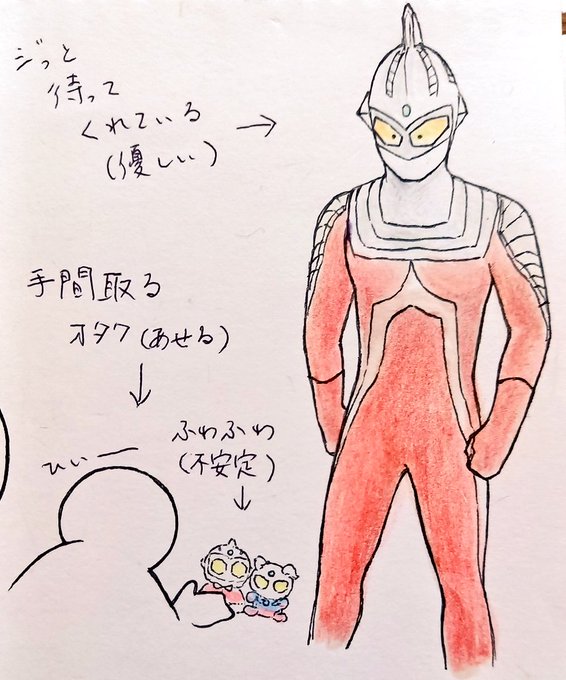 ジっと
待って
くれている
(優しい)
→
手間取る
オタク(あせる)
↓
ふわふわ
(不安定)
↓
ひぃー